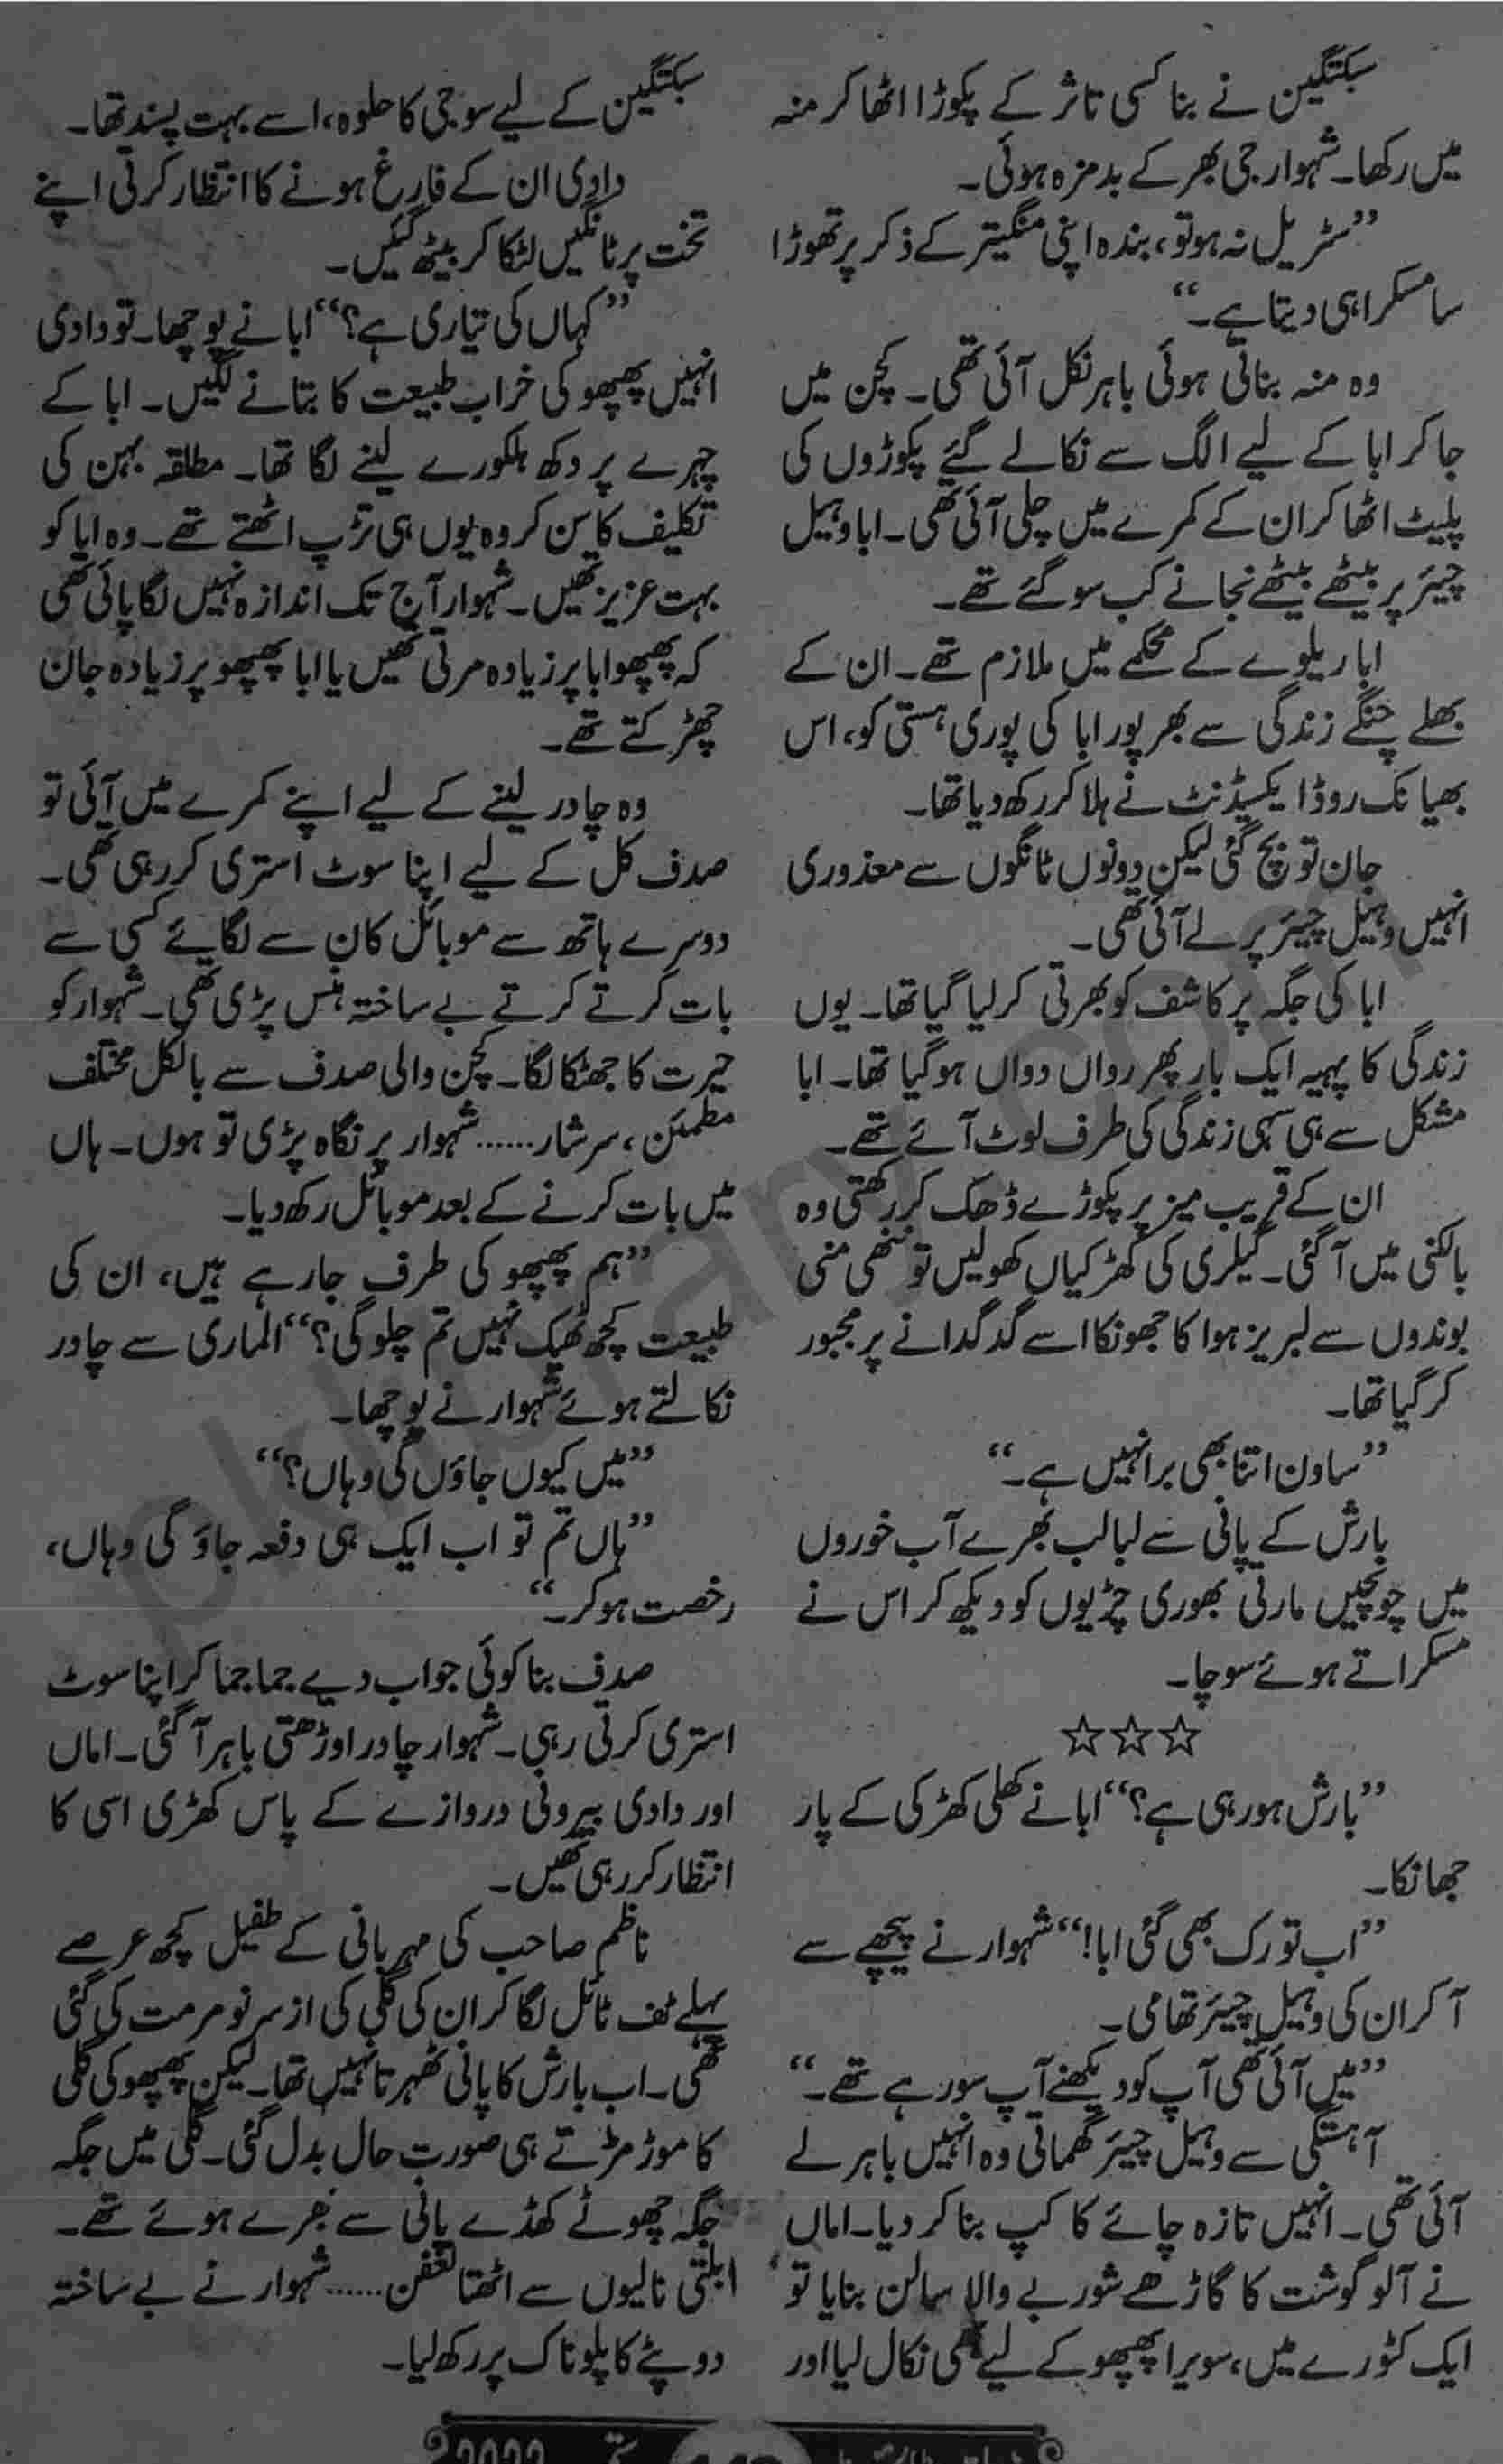 سبکتگین نے بنا کسی تاثر کے پکوڑا اٹھا کر منہ
میں رکھا۔ شہوار جی بھر کے بدمزہ ہوئی۔
”سڑیل نہ ہو تو، بندہ اپنی منگیتر کے ذکر پر تھوڑا
سا مسکرا ہی دیتا ہے۔“
وہ منہ بناتی ہوئی باہر نکل آئی تھی۔ کچن میں
جا کر ابا کے لیے الگ سے نکالے گئے پکوڑوں کی
پلیٹ اٹھا کر ان کے کمرے میں چلی آئی تھی۔ ابا وہیل
چیئر پر بیٹھے بیٹھے نجانے کب سو گئے تھے۔
ابا ریلوے کے محکمے میں ملازم تھے۔ ان کے
بھلے چنگے زندگی سے بھرپور ابا کی پوری ہستی کو، اس
بھیانک روڈ ایکسیڈنٹ نے ہلا کر رکھ دیا تھا۔
جان تو بچ گئی لیکن دونوں ٹانگوں سے معذوری
انہیں وہیل چیئر پر لے آئی تھی۔
ابا کی جگہ پر کاشف کو بھرتی کر لیا گیا تھا۔ یوں
زندگی کا پہیہ ایک بار پھر رواں دواں ہو گیا تھا۔ ابا
مشکل سے ہی سہی زندگی کی طرف لوٹ آئے تھے۔
ان کے قریب میز پر پکوڑے ڈھک کر رکھتی وہ
بالکنی میں آ گئی۔ گیلری کی کھڑکیاں کھولیں تو ننھی منی
بوندوں سے لبریز ہوا کا جھونکا اسے گدگدانے پر مجبور
کر گیا تھا۔
”ساون اتنا بھی برا نہیں ہے۔“
بارش کے پانی سے لبالب بھرے آب خوروں
میں چونچیں مارتی بھوری چڑیوں کو دیکھ کر اس نے
مسکراتے ہوئے سوچا۔
☆☆☆
”بارش ہو رہی ہے؟“ ابا نے کھلی کھڑکی کے پار
جھانکا۔
”اب تو رک بھی گئی ابا!“ شہوار نے پیچھے سے
آ کر ان کی وہیل چیئر تھامی۔
”میں آئی تھی آپ کو دیکھنے آپ سو رہے تھے۔“
آہستگی سے وہیل چیئر گھماتی وہ انہیں باہر لے
آئی تھی۔ انہیں تازہ چائے کا کپ بنا کر دیا۔ اماں
نے آلو گوشت کا گاڑھے شوربے والا سالن بنایا تو
ایک کٹورے میں، سویرا پھپھو کے لیے بھی نکال لیا اور
سبکتگین کے لیے سوجی کا حلوہ، اسے بہت پسند تھا۔
دادی ان کے فارغ ہونے کا انتظار کرتی اپنے
تخت پر ٹانگیں لٹکا کر بیٹھ گئیں۔
”کہاں کی تیاری ہے؟“ ابا نے پوچھا۔ تو دادی
انہیں پھپھو کی خراب طبیعت کا بتانے لگیں۔ ابا کے
چہرے پر دکھ ہلکورے لینے لگا تھا۔ مطلقہ بہن کی
تکلیف کا سن کر وہ یوں ہی تڑپ اٹھتے تھے۔ وہ ابا کو
بہت عزیز تھیں۔ شہوار آج تک اندازہ نہیں لگا پائی تھی
کہ پھپھو ابا پر زیادہ مرتی تھیں یا ابا پھپھو پر زیادہ جان
چھڑکتے تھے۔
وہ چادر لینے کے لیے اپنے کمرے میں آئی تو
صدف کل کے لیے اپنا سوٹ استری کر رہی تھی۔
دوسرے ہاتھ سے موبائل کان سے لگائے کسی سے
بات کرتے کرتے بے ساختہ ہنس پڑی تھی۔ شہوار کو
حیرت کا جھٹکا لگا۔ کچن والی صدف سے بالکل مختلف
مطمئن، سرشار...... شہوار پر نگاہ پڑی تو ہوں۔ ہاں
میں بات کرنے کے بعد موبائل رکھ دیا۔
”ہم پھپھو کی طرف جا رہے ہیں، ان کی
طبیعت کچھ ٹھیک نہیں تم چلو گی؟“ الماری سے چادر
نکالتے ہوئے شہوار نے پوچھا۔
”میں کیوں جاؤں گی وہاں؟“
”ہاں تم تو اب ایک ہی دفعہ جاؤ گی وہاں،
رخصت ہو کر۔“
صدف بنا کوئی جواب دیے جما جما کر اپنا سوٹ
استری کرتی رہی۔ شہوار چادر اوڑھتی باہر آ گئی۔ اماں
اور دادی بیرونی دروازے کے پاس کھڑی اسی کا
انتظار کر رہی تھیں۔
ناظم صاحب کی مہربانی کے طفیل کچھ عرصے
پہلے ٹف ٹائل لگا کر ان کی گلی کی از سر نو مرمت کی گئی
تھی۔ اب بارش کا پانی ٹھہرتا نہیں تھا۔ لیکن پھپھو کی گلی
کا موڑ مڑتے ہی صورت حال بدل گئی۔ گلی میں جگہ
جگہ چھوٹے کھڈے پانی سے بھرے ہوئے تھے۔
ابلتی نالیوں سے اٹھتا تعفن...... شہوار نے بے ساختہ
دوپٹے کا پلو ناک پر رکھ لیا۔
2022